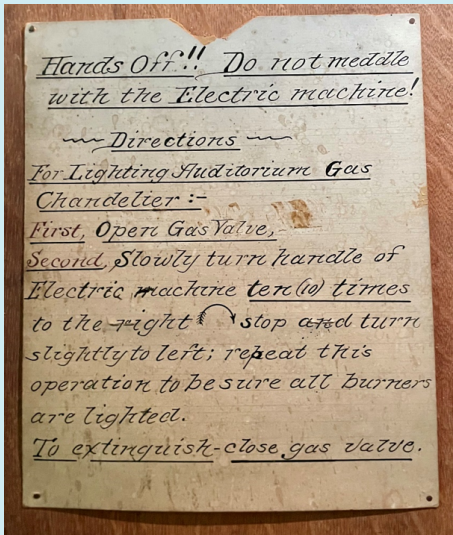 Hands Off!! Do not meddle
with the Electric machine!
Directions
For Lighting Auditorium Gas
Chandelier :-
First, Open Gas Valve,-
Second, Slowly turn handle of
Electric machine ten (10) times
to the right stop and turn
slightly to left; repeat this
operation to be sure all burners
are lighted.
To extinguish-close gas valve.